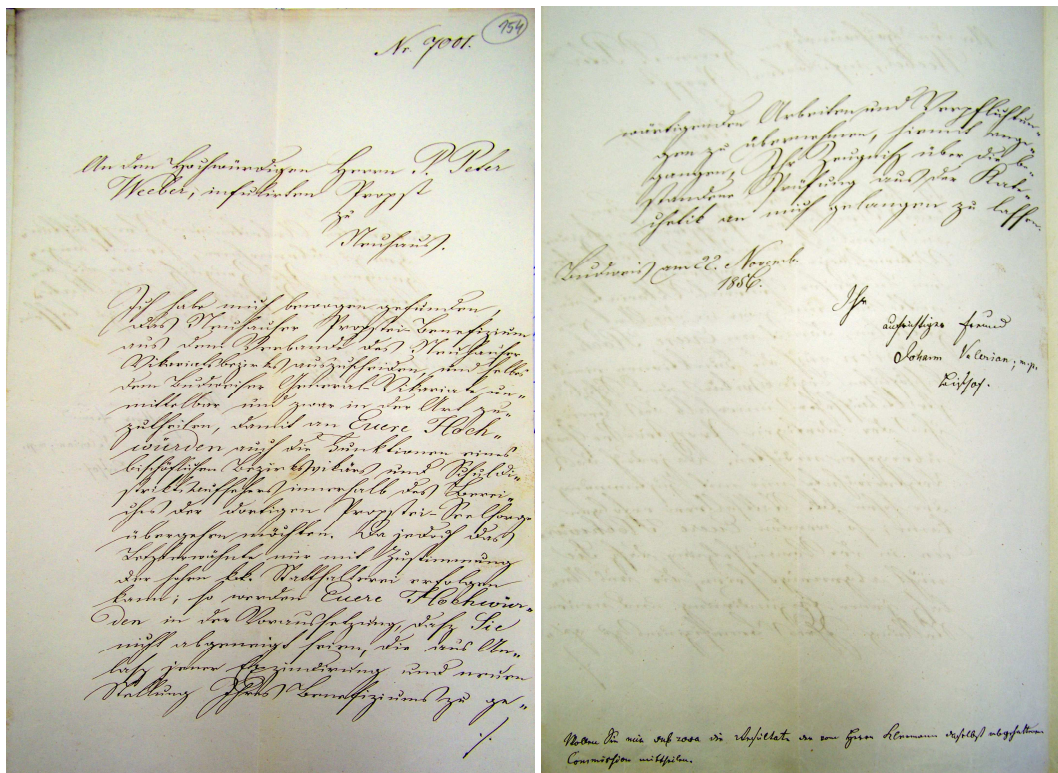 154
Nr. 7001.
An den Hochwürdigen Herrn P. Peter
Weeber, infulirten Propst
zu
Neuhaus.
Ich habe mich bewogen gefunden,
das Neuhauser Propstei-Benefizium
aus dem Verbande des Neuhauser
Vikariatsbezirks auszuscheiden, und selbes
dem Budweiser General-Vikariate un-
mittelbar und zwar in der Art zu-
zutheilen, damit an Euere Hoch-
würden auch die Funktionen eines
bischöflichen Bezirksvikärs und Schuldi-
striktsaufsehers innerhalb des Berei-
ches der dortigen Propstei-Seelsorge
übergehen möchten. Da jedoch das
Letzterwähnte nur mit Zustimmung
der hohen k.k. Statthalterei erfolgen
kann; so werden Euere Hochwür-
den in der Voraussetzung, daß Sie
nicht abgeneigt seien, die aus An-
laß jener Exzindirung und neuen
Stellung Ihres Benefiziums zu ge-
./.
wärtigenden Arbeiten und Verpflichtun-
gen zu übernehmen, hiemit ange-
gangen, Ihr Zeugniß über die be-
standene Prüfung aus der Kate-
chetik an mich gelangen zu lassen.
Budweis am 22. Novemb.
1856.
Ihr
aufrichtiger Freund
Johann Valerian, m.p.
Bischof.
Wollen Sie mir sub rosa die Resultate der von Herrn daselbst abgehaltenen
Commission mittheilen.